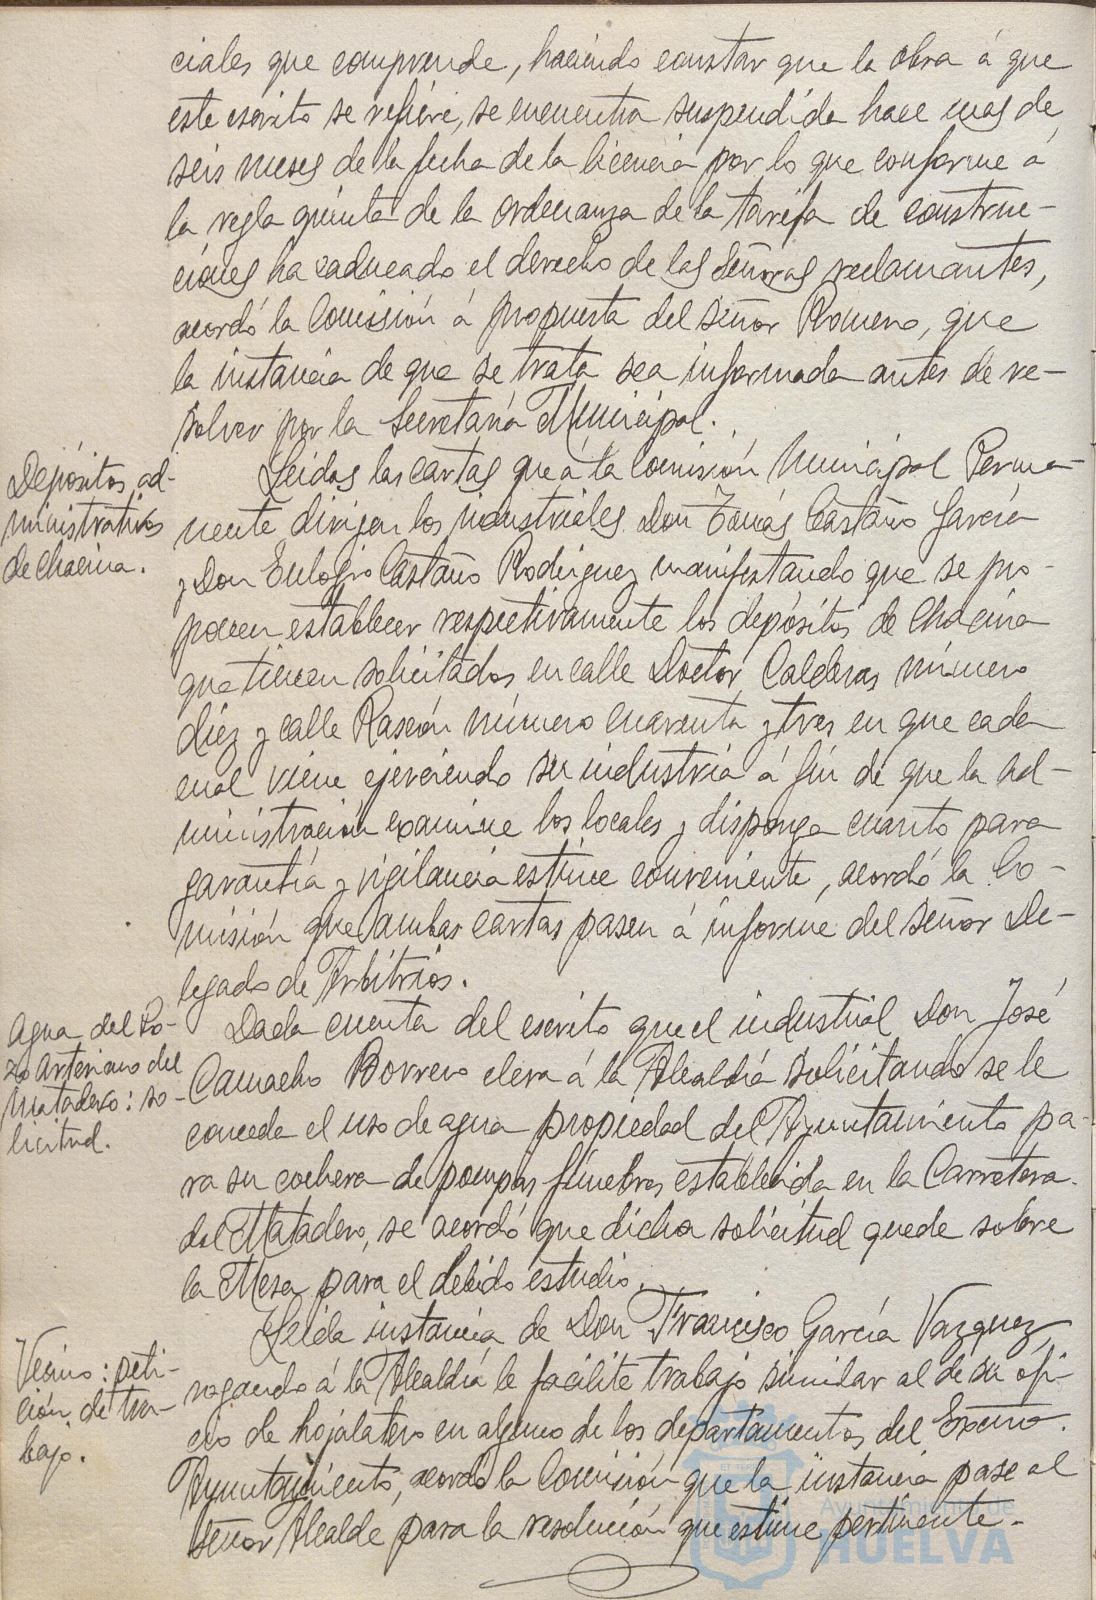 ciales que comprende, haciendo constar que la obra á que
este escrito se refiere, se encuentra suspendida hace mas de
seis meses de la fecha de la licencia por lo que conforme á
la regla quinta de la ordenanza de la tarifa de construc-
ciones ha caducado el derecho de las Señoras reclamantes,
acordó la Comisión á propuesta del Señor Romero, que
la instancia de que se trata sea informada antes de re-
solver por la Secretaría Municipal.
Depósitos ad-
ministrativos
de chacina.
Leidas las cartas que á la Comisión Municipal Perma-
nente dirigen los industriales Don Tomás Castaño García
y Don Eulogio Castaño Rodriguez manifestando que se pro-
ponen establecer respectivamente los depósitos de chacina
que tienen solicitados en calle Doctor Calderas número
diez y calle Rascón número cuarenta y tres en que cada
cual viene ejerciendo su industria á fin de que la ad-
ministración examine los locales y disponga cuanto para
garantía y vigilancia estime conveniente, acordó la Co-
misión que ambas cartas pasen á informe del Señor De-
legado de Arbitrios.
Agua del Po-
zo Artesiano del
Matadero: so-
licitud.
Dada cuenta del escrito que el industrial Don José
Camacho Borrero eleva á la Alcaldía solicitando se le
conceda el uso de agua propiedad del Ayuntamiento pa-
ra su cochera de pompas fúnebres establecida en la Carretera
del Matadero, se acordó que dicha solicitud quede sobre
la Mesa para el debido estudio.
Vecino: peti-
ción de tra-
bajo.
Leida instancia de Don Francisco García Vazquez
rogando á la Alcaldía le facilite trabajo similar al de su ofi-
cio de hojalatero en alguno de los departamentos del Excmo.
Ayuntamiento, acordó la Comisión que la instancia pase al
Señor Alcalde para la resolución que estime pertinente.
Ayuntamiento de
HUELVA